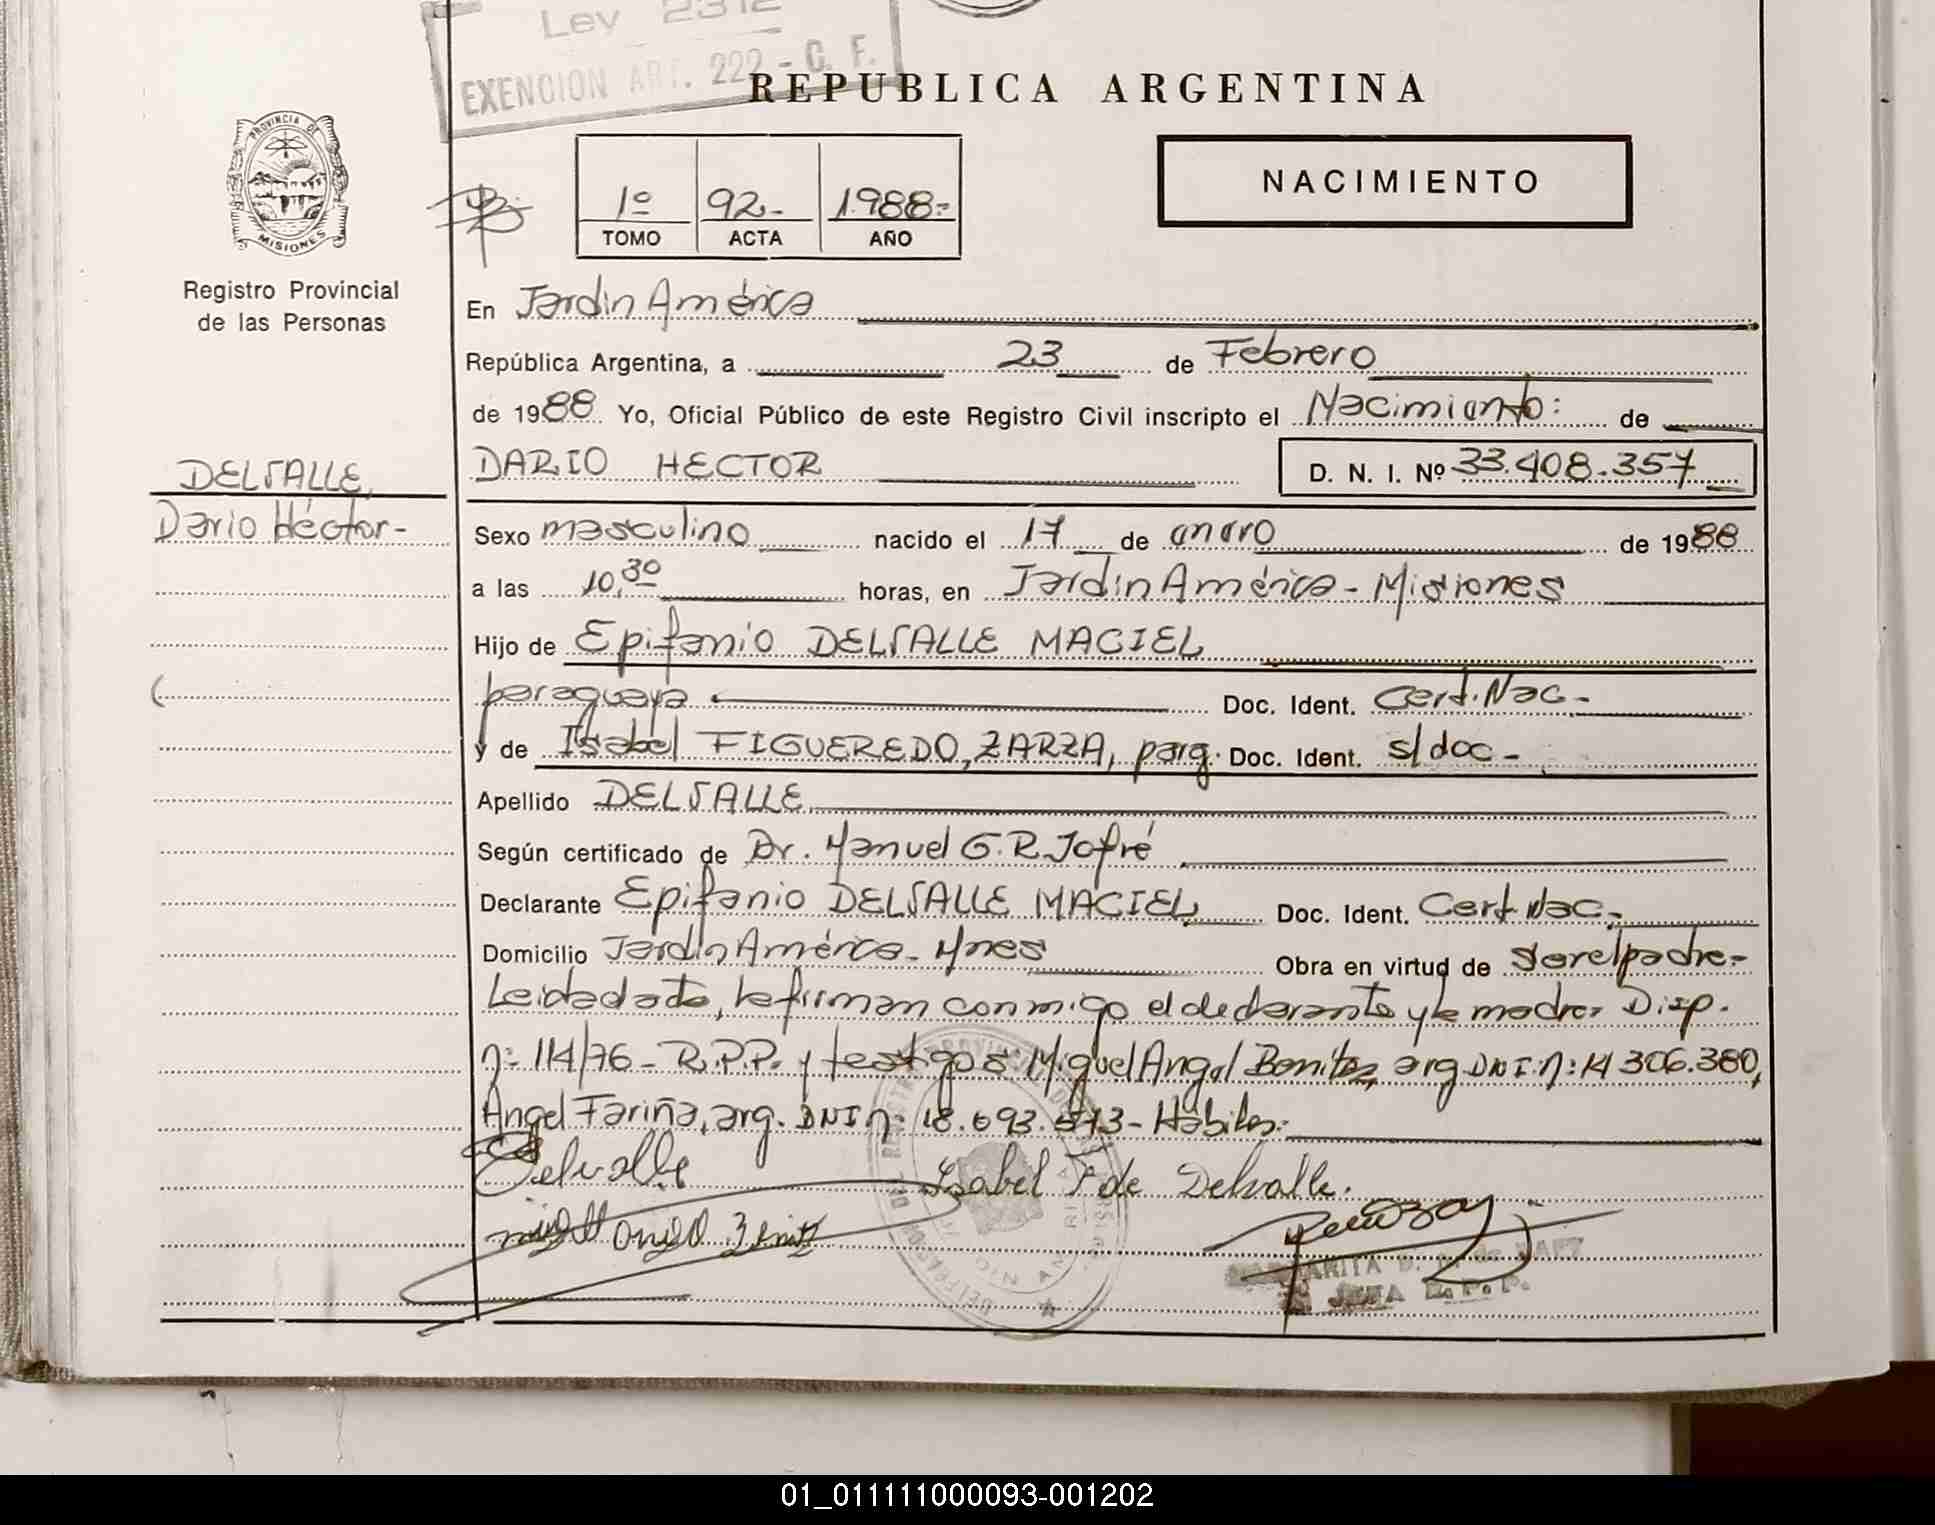 Ley 2312
EXENCION ART. 222 - C. F.
REPUBLICA ARGENTINA
PROVINCIA DE
MISIONES
Registro Provincial
de las Personas
1º 92- 1988-
TOMO ACTA AÑO
NACIMIENTO
En Jardin América
República Argentina, a 23 de Febrero
de 1988 Yo, Oficial Público de este Registro Civil inscripto el Nacimiento: de
DARIO HECTOR D. N. I. Nº 33.408.357
DELVALLE,
Dario Héctor-
Sexo masculino nacido el 17 de enero de 1988
a las 10,30 horas, en Jardin América - Misiones
Hijo de Epifanio DELVALLE MACIEL
paraguaya Doc. Ident. Cert. Nac-
y de Isabel FIGUEREDO, ZARZA, parg. Doc. Ident. s/doc-
Apellido DELVALLE
Según certificado de Dr. Manuel G. R. Jofré
Declarante Epifanio DELVALLE MACIEL Doc. Ident. Cert Nac.
Domicilio Jardin América - Mnes Obra en virtud de ser el padre-
Leida el acta, la firman conmigo el declarante y la madre Disp.
nº 114/76 - R.P.P. y testigos Miguel Angel Benitez, arg DNI. nº: 14 306.380,
Angel Fariña, arg. DNI nº: 18.693. - Hábiles.
Delvalle Isabel F de Delvalle.
R.P.P.
01_011111000093-001202